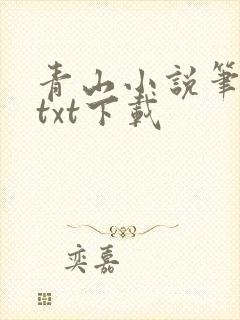 青山小說筆
txt下載
奕嘉